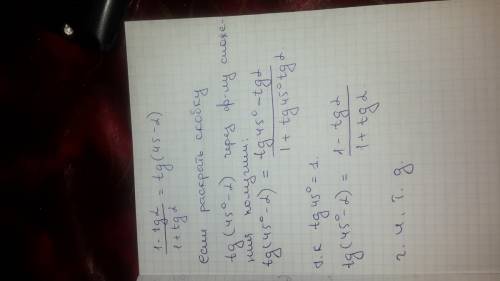 1 - tgα / 1 + tgα = tg(45 - α)
если раскрыть скобку
tg(45° - α) через ф-лу сложе-
ния получим:
tg(45° - α) = tg45° - tgα / 1 + tg45° tgα
т.к tg45° = 1.
tg(45° - α) = 1 - tgα / 1 + tgα
ч. и. т. д.